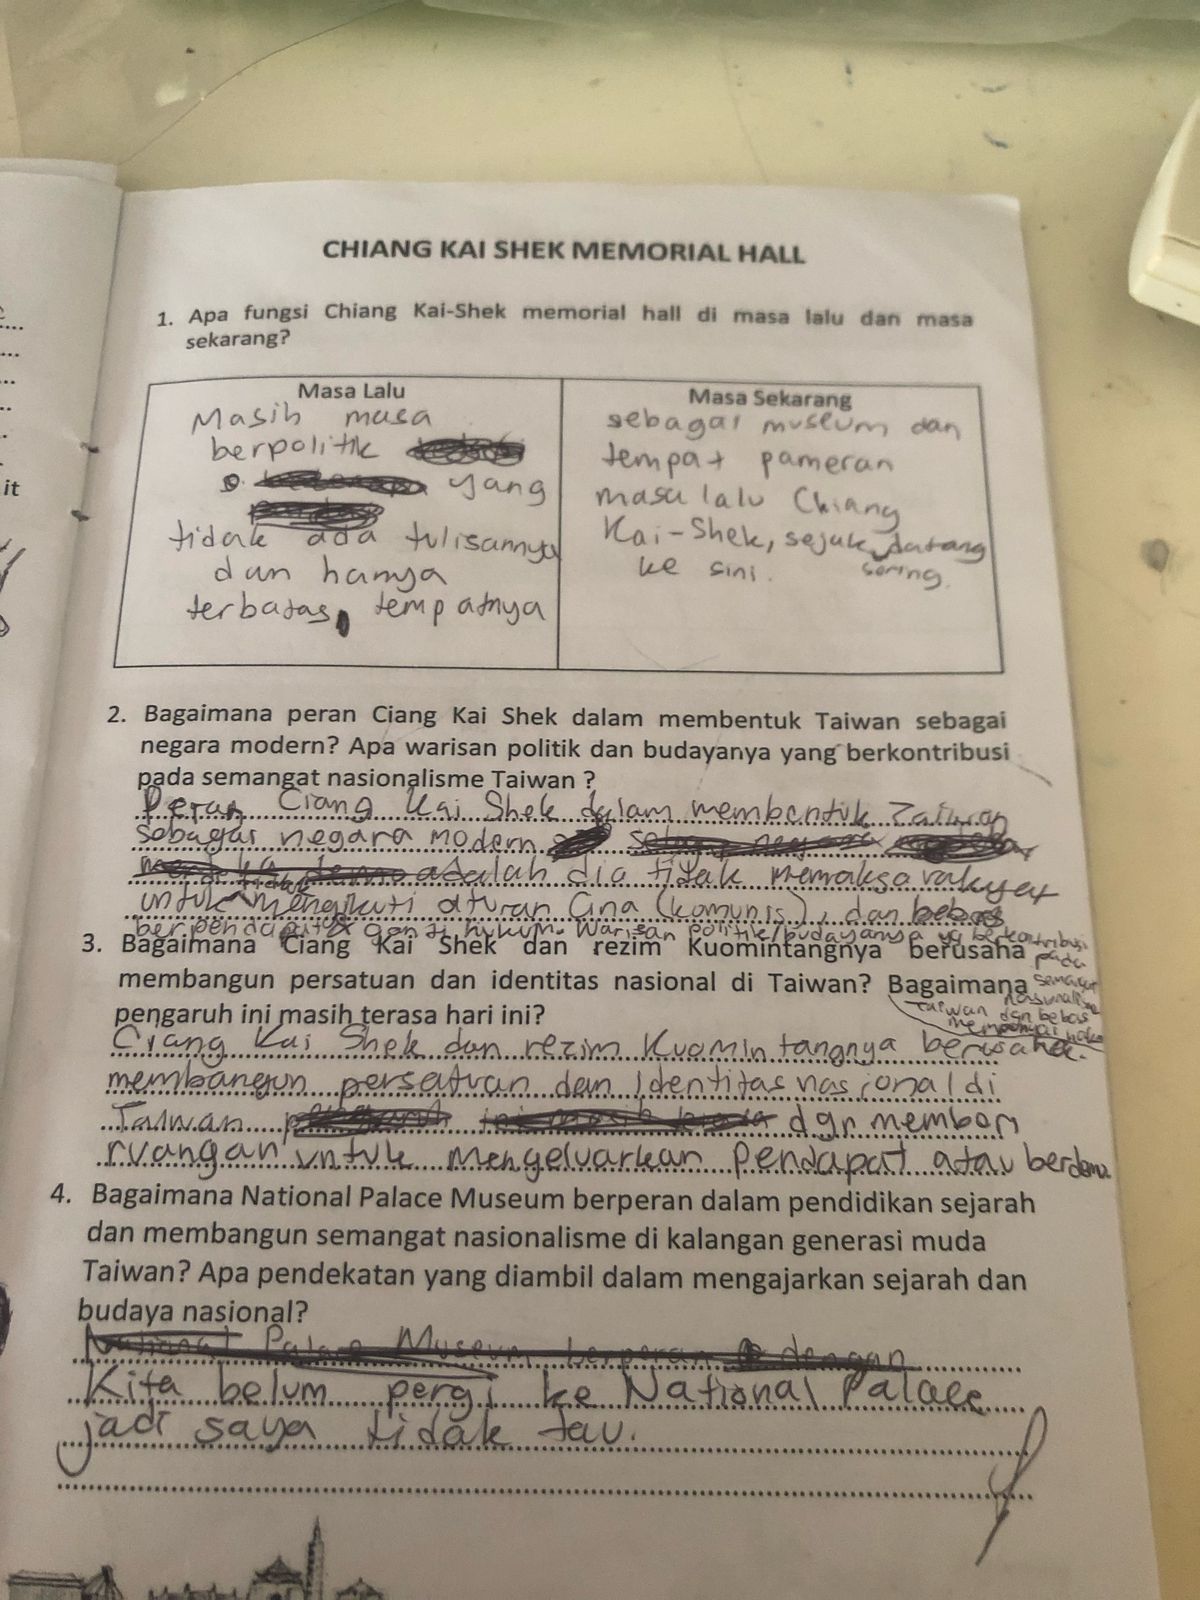 CHIANG KAI SHEK MEMORIAL HALL
1. Apa fungsi Chiang Kai-Shek memorial hall di masa lalu dan masa
sekarang?
Masa Lalu
Masih masa
berpolitik
yang
tidak ada tulisannya
dan hanya
terbatas tempatnya
Masa Sekarang
sebagai museum dan
tempat pameran
masa lalu Chiang
Kai-Shek, sejuk, datang
ke sini. sering.
2. Bagaimana peran Ciang Kai Shek dalam membentuk Taiwan sebagai
negara modern? Apa warisan politik dan budayanya yang berkontribusi
pada semangat nasionalisme Taiwan ?
Peran Ciang Kai Shek dalam membentuk Taiwan
sebagai negara modern
adalah dia tidak memaksa rakyat
untuk tidak mengikuti aturan Cina (komunis), dan bebas
berpendapat & ganti hukum. Warisan politik/budayanya yg berkontribusi
pada
semangat
nasionalisme
Taiwan dgn bebas
mempunyai
3. Bagaimana Ciang Kai Shek dan rezim Kuomintangnya berusaha
membangun persatuan dan identitas nasional di Taiwan? Bagaimana
pengaruh ini masih terasa hari ini?
Ciang Kai Shek dan rezim Kuomintangnya berusaha
membangun persatuan dan identitas nasional di
Taiwan dgn memberi
ruangan untuk mengeluarkan pendapat atau berdemo
4. Bagaimana National Palace Museum berperan dalam pendidikan sejarah
dan membangun semangat nasionalisme di kalangan generasi muda
Taiwan? Apa pendekatan yang diambil dalam mengajarkan sejarah dan
budaya nasional?
National Palace Museum berperan dengan
Kita belum pergi ke National Palace
jadi saya tidak tau.
it